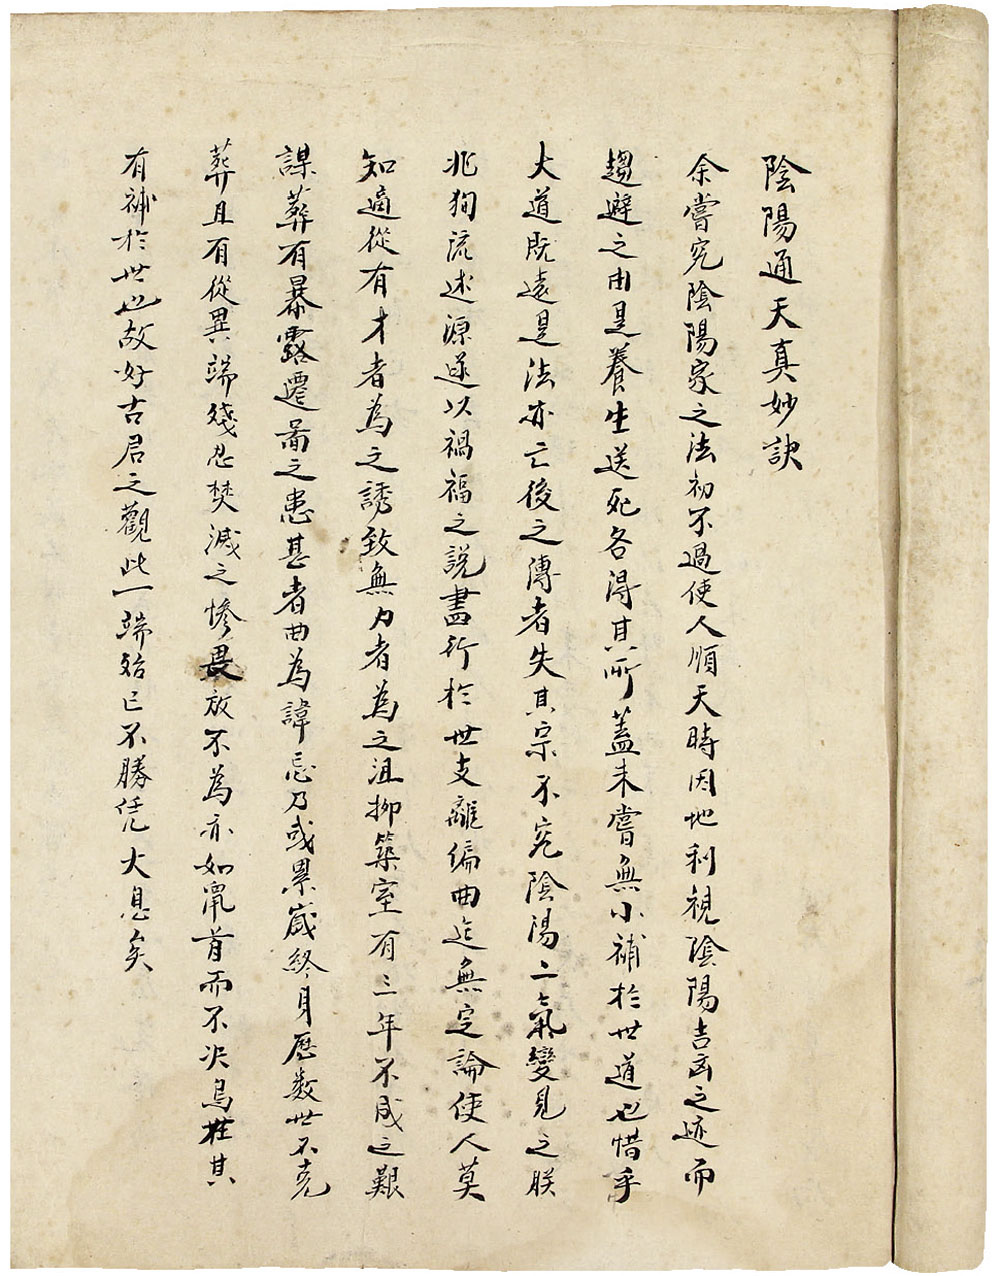 陰陽通天真妙訣
余嘗究陰陽家之法初不過使人順天時因地利視陰陽吉凶之迹而
趨避之由是養生送死各得其所蓋未嘗無小補於世道也惜乎
大道既遠是法亦亡後之傳者失其宗不究陰陽二氣變見之朕
兆狥流述源遂以禍福之說盡行於世支離編曲迄無定論使人莫
知適從有才者為之誘致無力者為之沮抑築室有三年不成之艱
謀葬有暴露遷啚之患甚者曲為諱忌乃或累歲終月歷數世不克
葬且有從異端殘忍焚滅之慘畏放不為亦如鼠首而不决烏在其
有補於世也故好古君之觀此一端殆已不勝凭大息矣